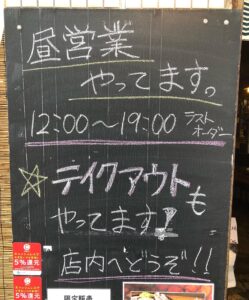 昼営業
やってます。
12:00~19:00 ラストオーダー
☆テイクアウトも
やってます!
店内へどうぞ!!
5%還元
5%還元
限定販売